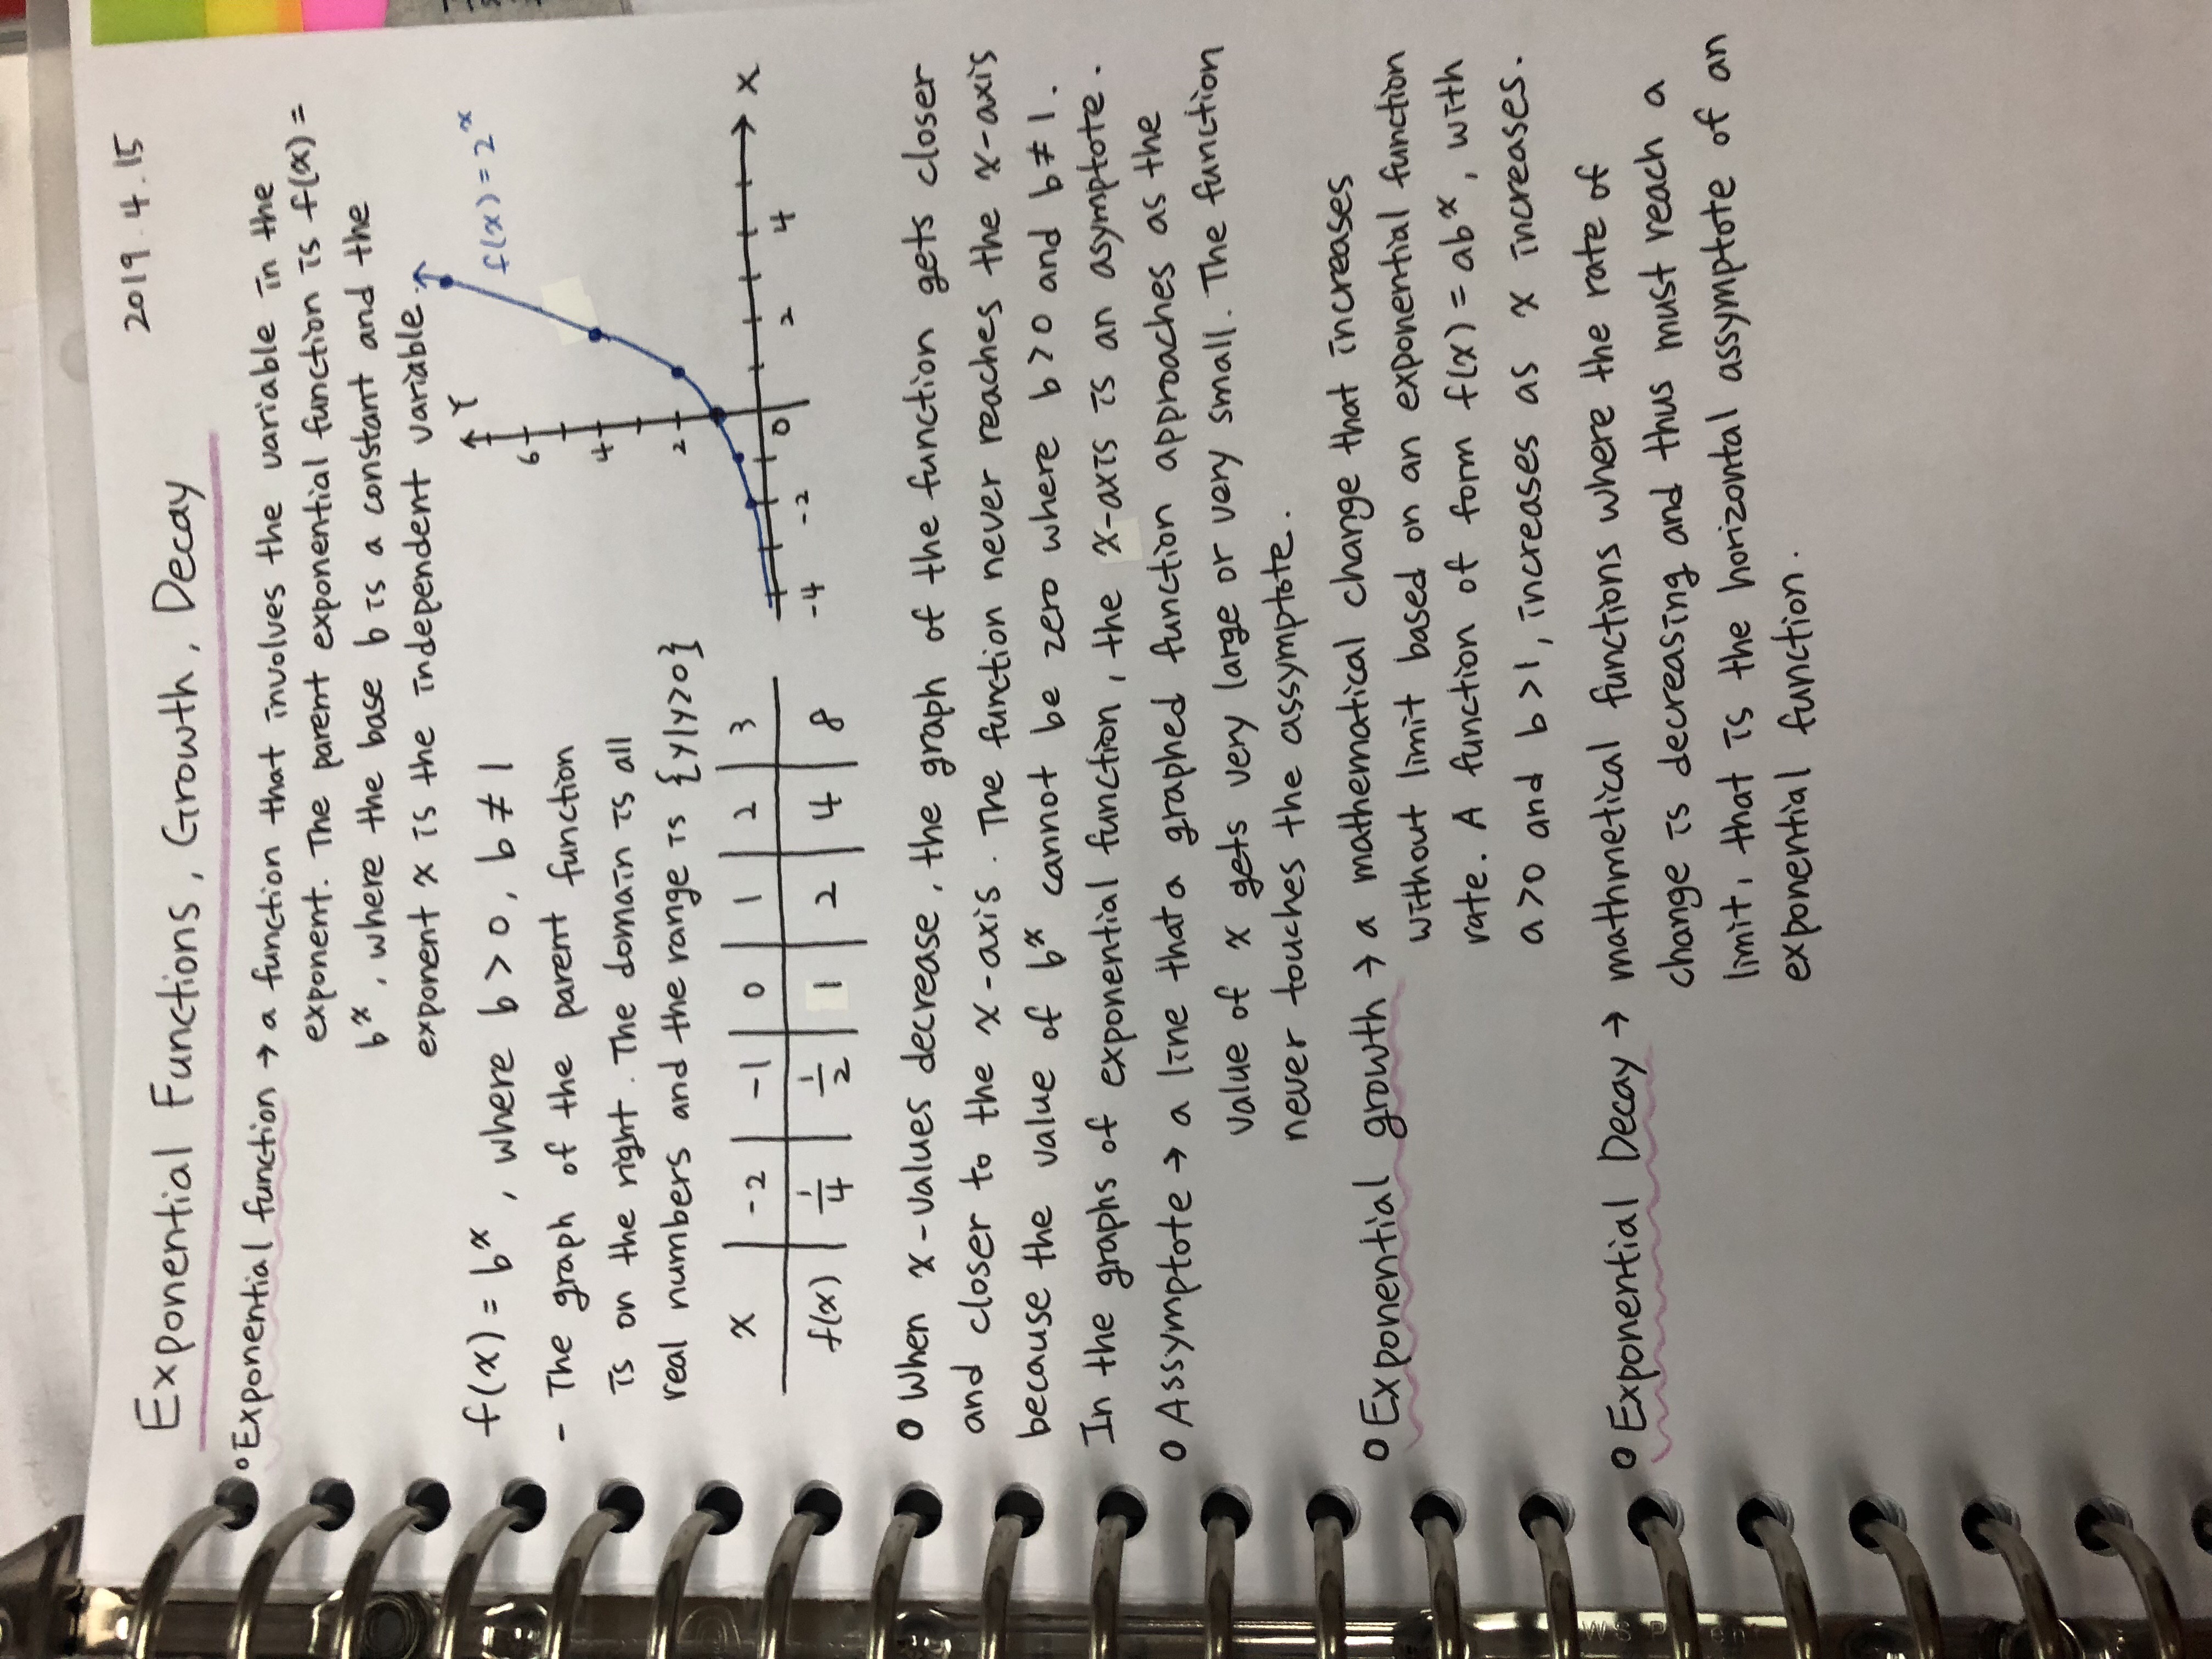 2019.4.15
Exponential Functions, Growth, Decay
Exponential function → a function that involves the variable in the
exponent. The parent exponential function is f(x) =
bˣ, where the base b is a constant and the
exponent x is the independent variable.
f(x) = bˣ, where b > 0, b ≠ 1
- The graph of the parent function
is on the right. The domain is all
real numbers and the range is {y|y>0}
x | -2 | -1 | 0 | 1 | 2 | 3
f(x) | 1/4 | 1/2 | 1 | 2 | 4 | 8
f(x) = 2ˣ
Y
6
4
2
-4 -2 0 2 4 X
o When x-values decrease, the graph of the function gets closer
and closer to the x-axis. The function never reaches the x-axis
because the value of bˣ cannot be zero where b>0 and b≠1.
In the graphs of exponential function, the x-axis is an asymptote.
o Assymptote → a line that a graphed function approaches as the
value of x gets very large or very small. The function
never touches the assymptote.
o Exponential growth → a mathematical change that increases
without limit based on an exponential function
rate. A function of form f(x) = abˣ, with
a>0 and b>1, increases as x increases.
o Exponential Decay → mathmetical functions where the rate of
change is decreasing and thus must reach a
limit, that is the horizontal assymptote of an
exponential function.